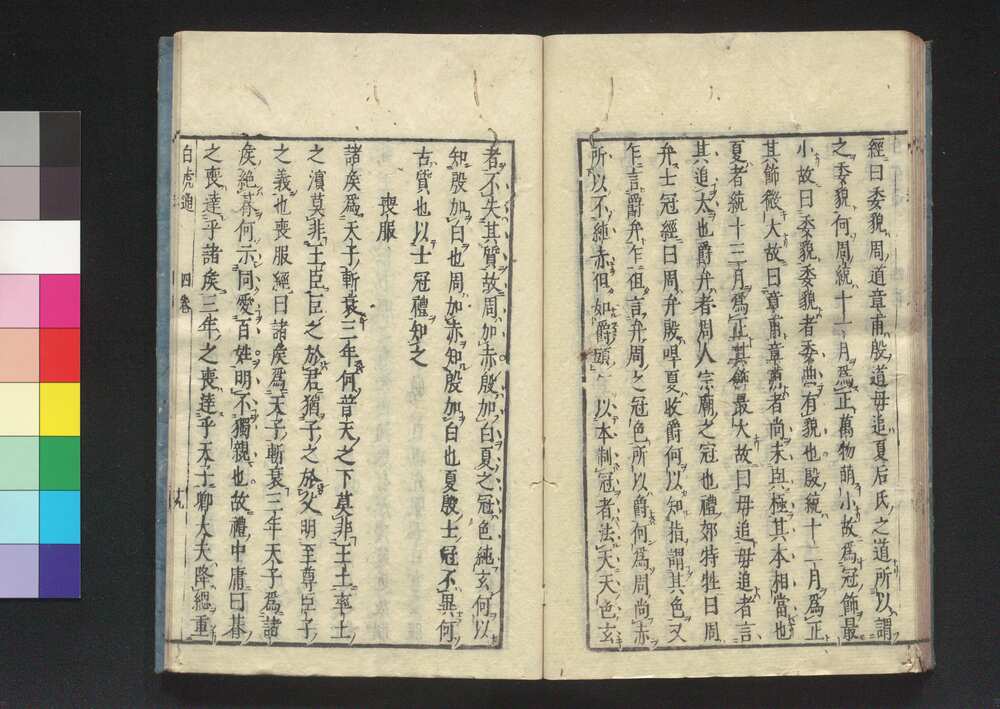 經曰委貌周道章甫殷道毋追夏后氏之道所以謂
之委貌何周統十一月爲正萬物萌小故爲冠飾最
小故曰委貌委貌者委曲有貌也殷統十二月爲正
其飾微大故曰章甫章甫者尚未與極其本相當也
夏者統十三月爲正其飾最大故曰毋追毋追者言
其追大也爵弁者周人宗廟之冠也禮郊特牲曰周
弁士冠經曰周弁殷哻夏收爵何以知指謂其色又
乍言爵弁乍但言弁周之冠色所以爵何爲周尚赤
所以不純赤但如爵頭何以本制冠者法天天色玄
者不失其質故周加赤殷加白夏之冠色純玄何以
知殷加白也周加赤知殷加白也夏殷士冠不異何
古質也以士冠禮知之
喪服
諸矦爲天子斬衰三年何普天之下莫非王土率土
之濱莫非王臣臣之於君猶子之於父明至尊臣子
之義也喪服經曰諸矦爲天子斬衰三年天子爲諸
矦絶朞何示同愛百姓明不獨親也故禮中庸曰朞
之喪達乎諸矦三年之喪達乎天子卿大夫降緦重
白虎通 四卷 十九